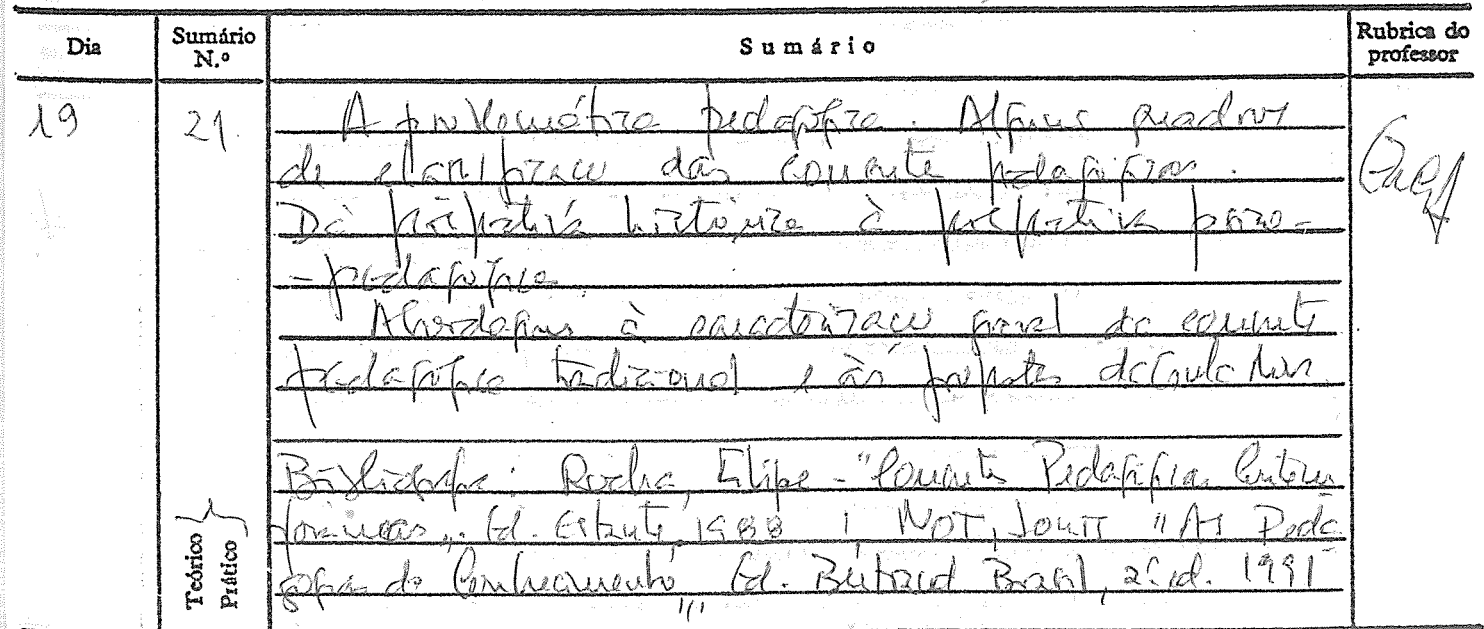 Dia Sumário N.º Sumário Rubrica do professor
19 21. A problemática pedagógica. Alguns quadros
de classificação das correntes pedagógicas.
Da perspectiva histórica à perspectiva psico-
-pedagógica.
Abordagem à caracterização geral da corrente
pedagógica tradicional e às propostas
Bibliografia: Rocha, Filipe - "Correntes Pedagógicas Contem
porâneas", Ed. Estante, 1988; NOT, Louis "As Peda
gogias do Conhecimento", Ed. Bertrand Brasil, 2ª ed. 1991
Teórico
Prático